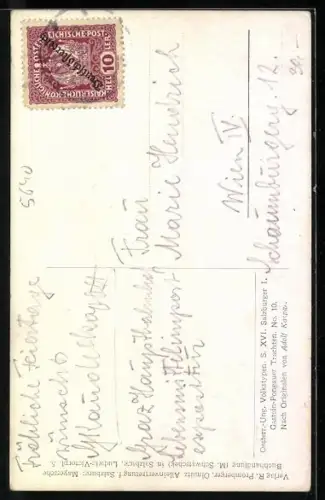 KAISERLICHE KÖNIGLICHE ÖSTERREICHISCHE POST
HELLER
10
Deutschösterreich
5640
30.-
Frau
Marie Hendrich
Wien IV.
Schaumburgerg. 12.
Fröhliche Feiertage
wünscht
Graz Hauptbahnhof
Oesterr.-Ung. Volkstypen. S. XVI. Salzburger I.
Gastein-Pongauer Trachten. No. 10.
Nach Originalen von Adolf Karpellus.
Verlag R. Promberger, Olmütz. Alleinvertretung f. Salzburg: Mayrische
Buchhandlung (M. Schwetschek) in Salzburg, Ludwig-Victorpl. 5.